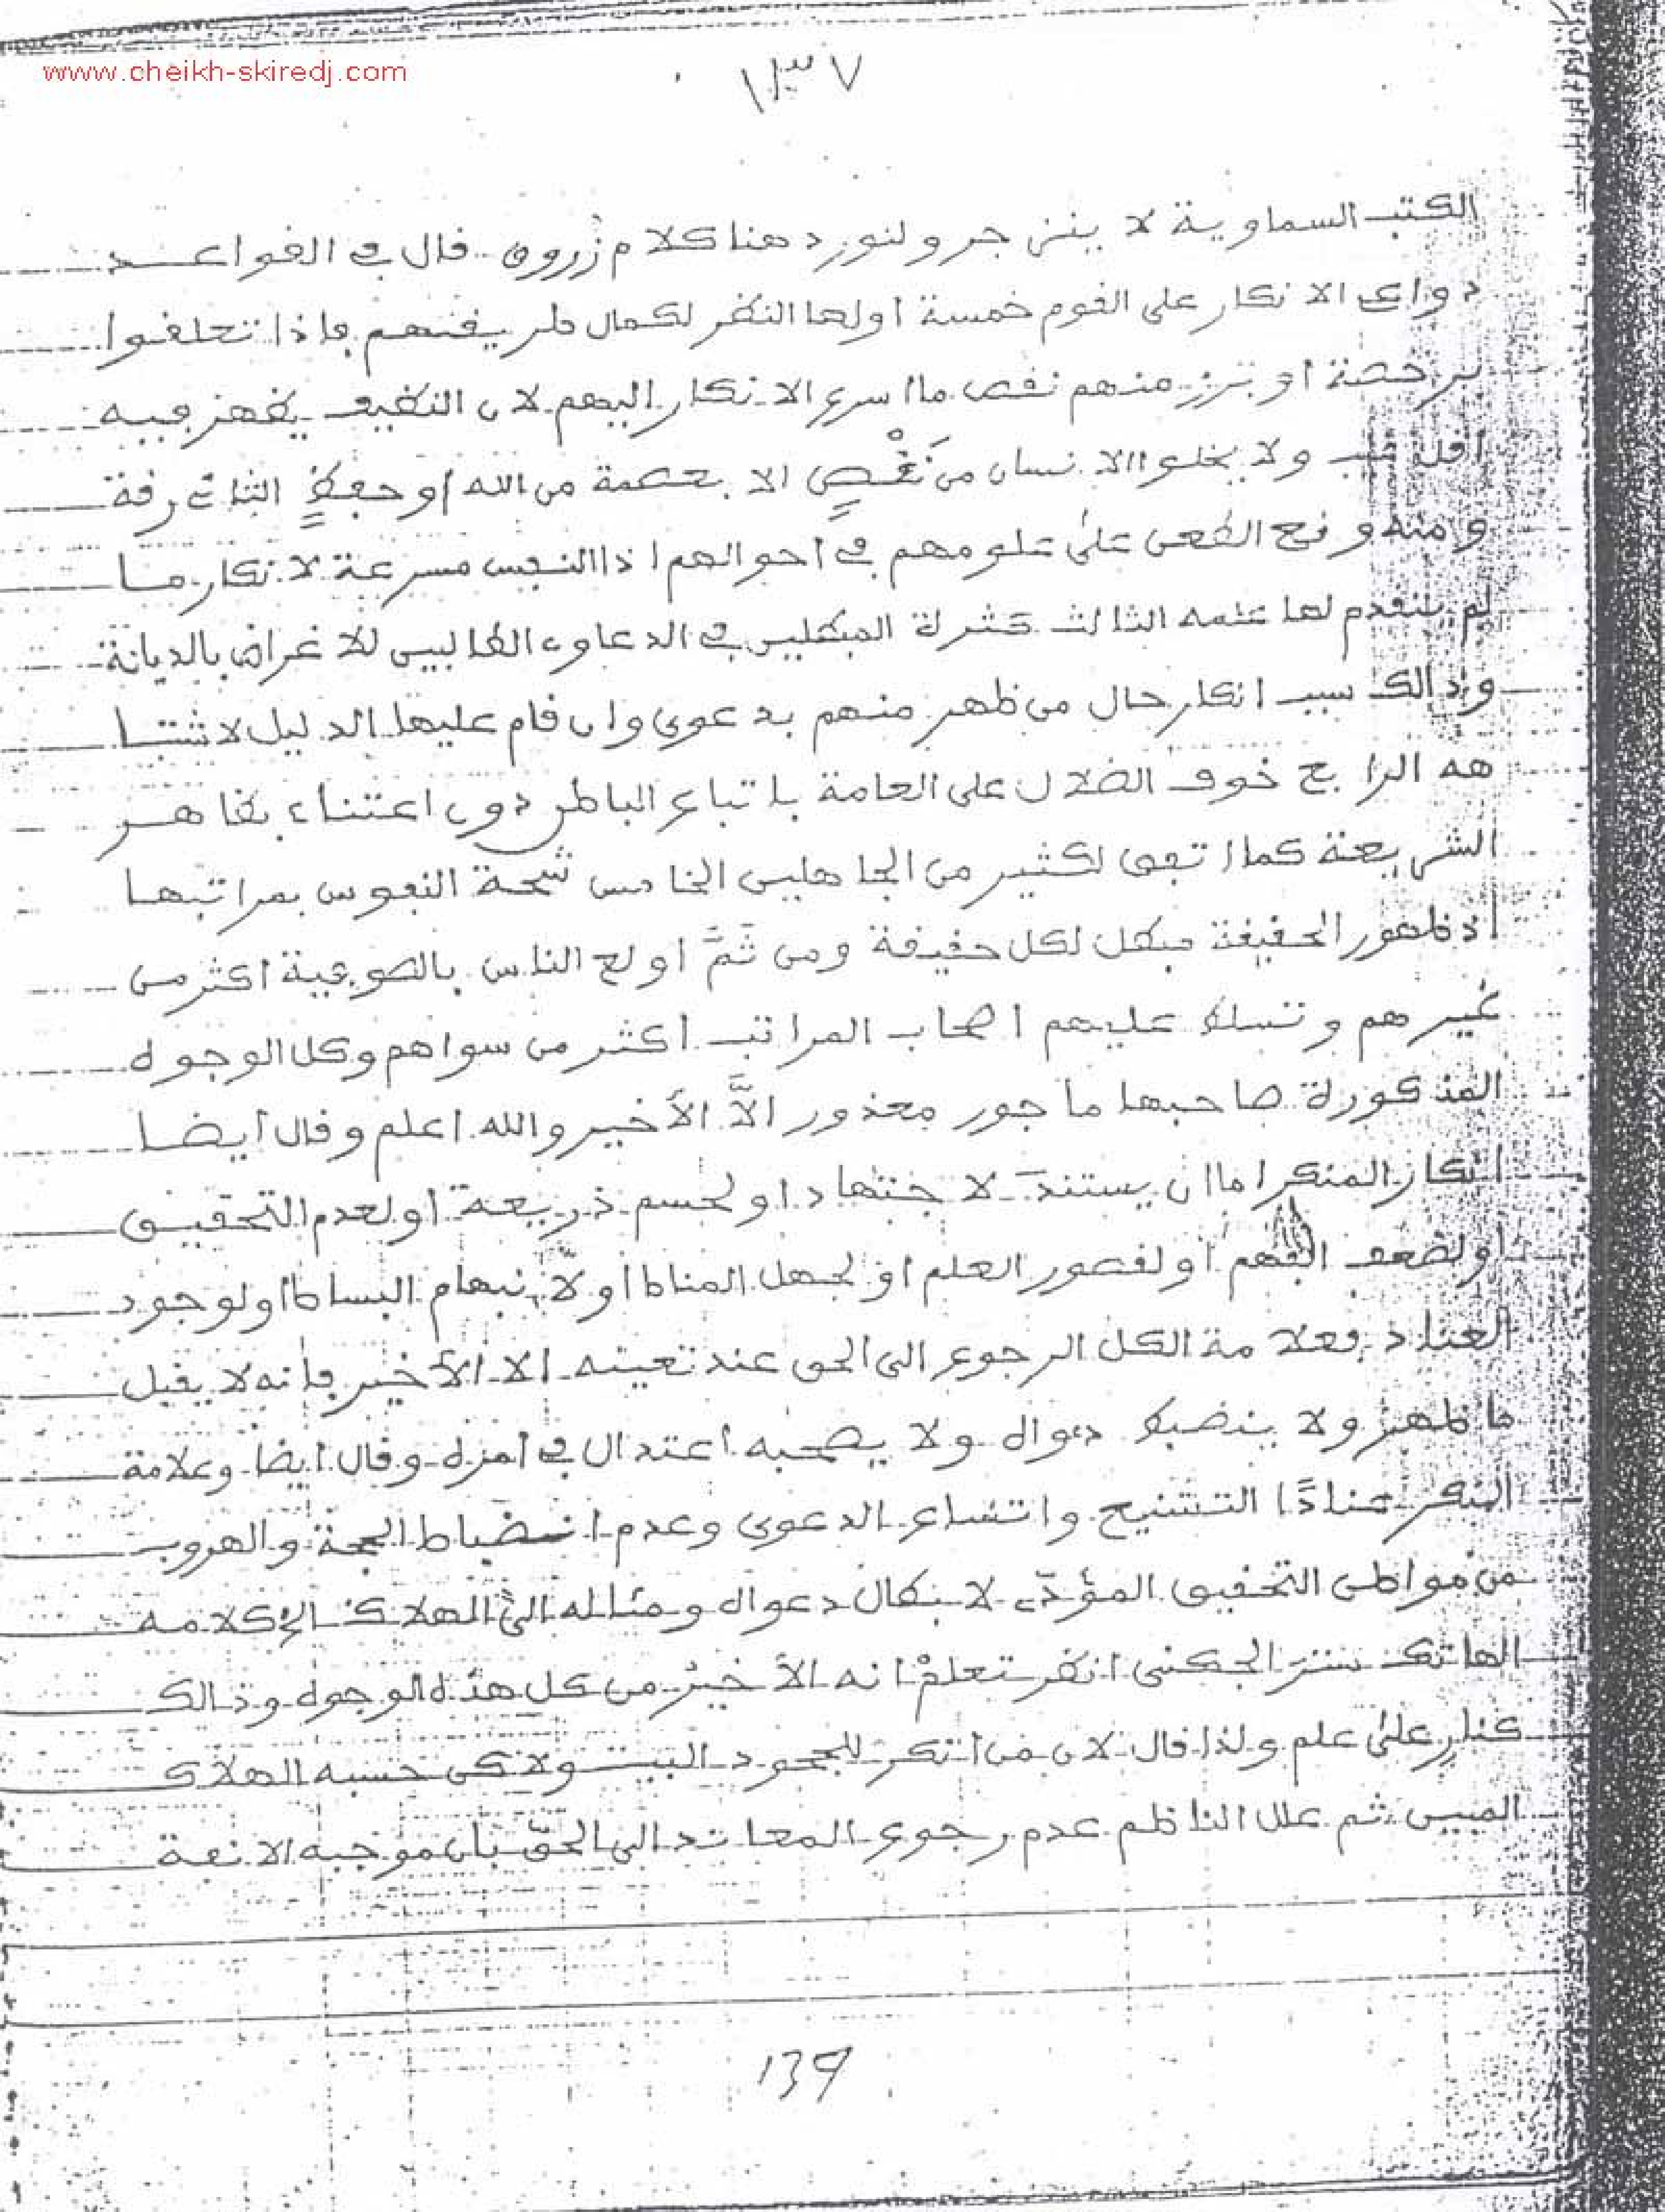 www.cheikh-skiredj.com
١٣٧
الكتب السماوية لا ينزجر ولنورد هنا كلام زروق قال في القواعد
دواعى الانكار على القوم خمسة اولها النظر لكمال طريقتهم فاذا تعلقوا
برخصة او برز منهم نقص ما اسرع الانكار اليهم لان النظيف يظهر فيه
اقل عيب ولا يخلوا الانسان من نَقْصٍ الا بعصمة من الله أو حفظٍ الثانى رقة
ومنه وقع الطعن علىٰ علومهم في احوالهم اذا النفس مسرعة لانكار ما
لم يتقدم لها علمه الثالث كثرة المبطلين في الدعاوى الطالبين للاغراض بالديانة
وذالك سبب انكار حال من ظهر منهم بدعوى وان قام عليها الدليل لاشتبا
هه الرابع خوف الضلال على العامة باتباع الباطن دون اعتناء بظاهر
الشريعة كما اتفق لكثير من الجاهلين الخامس شحة النفوس بمراتبها
اذ ظهور الحقيقة مبطل لكل حقيقة ومن ثَمَّ اولع الناس بالصوفية اكثر من
غيرهم وتسلط عليهم اصحاب المراتب أكثر من سواهم وكل الوجوه
المذكورة صاحبها ماجور معذور الاَّ الأخير والله اعلم وقال أيضا
انكار المنكر اما ان يستند لاجتهاد او لحسم ذريعة او لعدم التحقيق
او لضعف الفهم أو لقصور العلم او لجهل المناط أو لانبهام البساط أو لوجود
العناد فعلامة الكل الرجوع الى الحق عند تعينه الا الأخير فانه لا يقبل
ما ظهر ولا ينضبط دعواه ولا يصحبه اعتدال في امره وقال ايضا وعلامة
المنكر عنادًا التشنيع واتساع الدعوى وعدم انضباط الحجة والهروب
من مواطن التحقيق المؤدّى لابطال دعواه ومثاله الىٰ الهلاك الخ كلامه
الهاتك ستر انظر تعلمْ انه الأخير من كل هذه الوجوه وذالك
علىٰ علم ولذا قال لان من انكر للجحود البيت ولاكن حسبه الهلاك
المبين ثم علل الناظم عدم رجوع المعاند الى الحق بأن موجبه الانفة
139